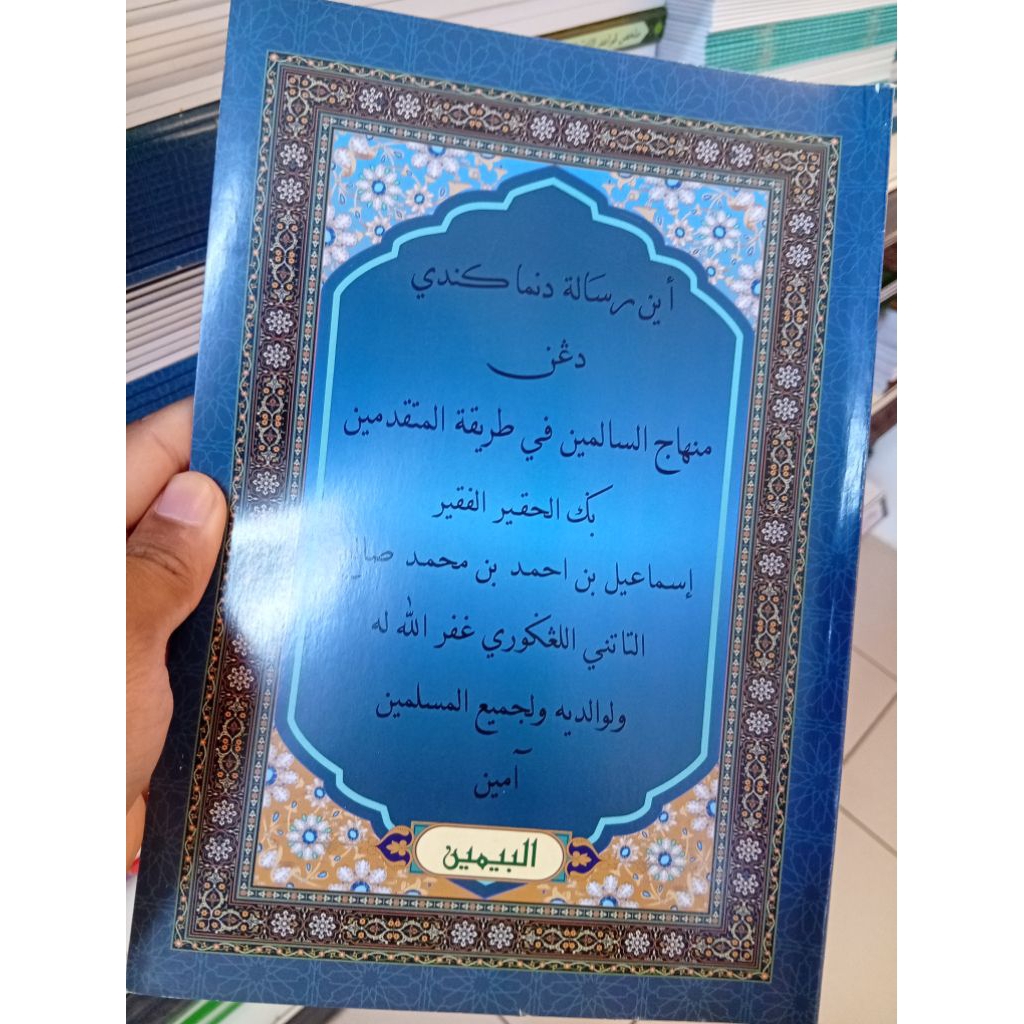 أين رسالة دنماكندي
دڠن
منهاج السالمين في طريقة المتقدمين
بݢ الحقير الفقير
إسماعيل بن احمد بن محمد
التاتني اللڠݢوري غفر الله له
ولوالديه ولجميع المسلمين
آمين
البيمين